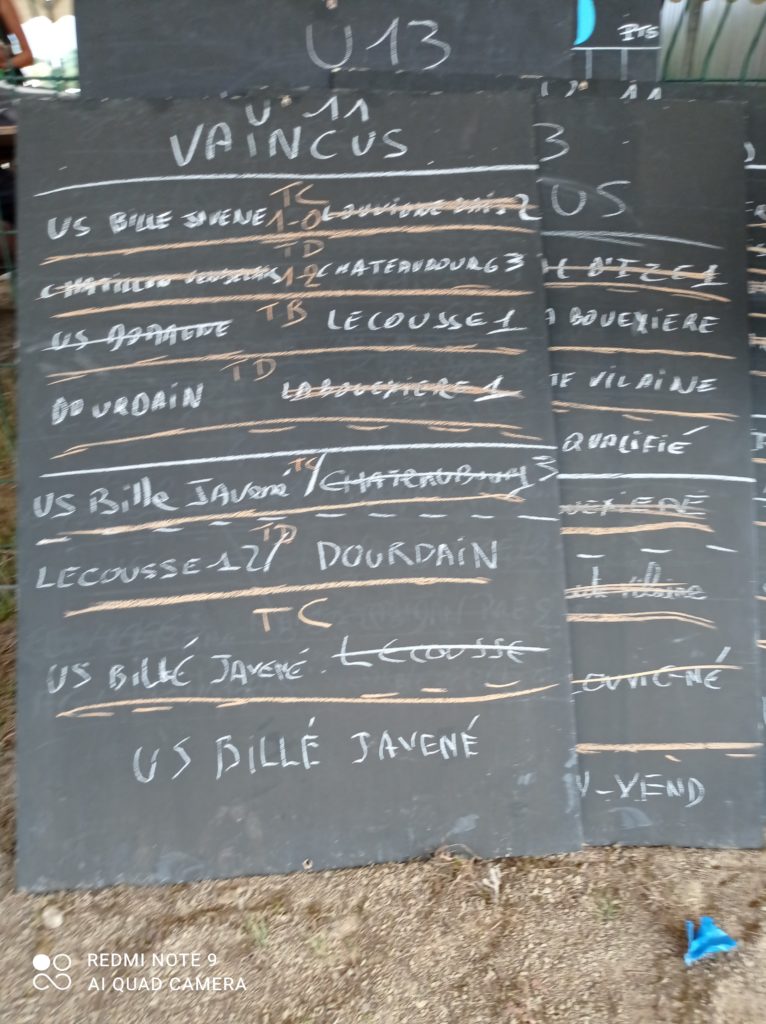 U13
Pts
U 11
VAINCUS
TC
US BILLE JAVENE 1-0 LOUVIGNE BAIS 2
TD
1-2 CHATEAUBOURG 3
TB
US LECOUSSE 1
TD
DOURDAIN LABOUEXIERE 1
TC
US Bille JAVENé / CHATEAUBOURG 3
TD
LECOUSSE 12/ DOURDAIN
TC
US BILLÉ JAVENÉ LECOUSSE
US BILLÉ JAVENÉ
3
US
D'IZE 1
A BOUEXIERE
TE VILAINE
QUALIFIÉ
UEXIERE
OUVIGNÉ
V-VEND
REDMI NOTE 9
AI QUAD CAMERA